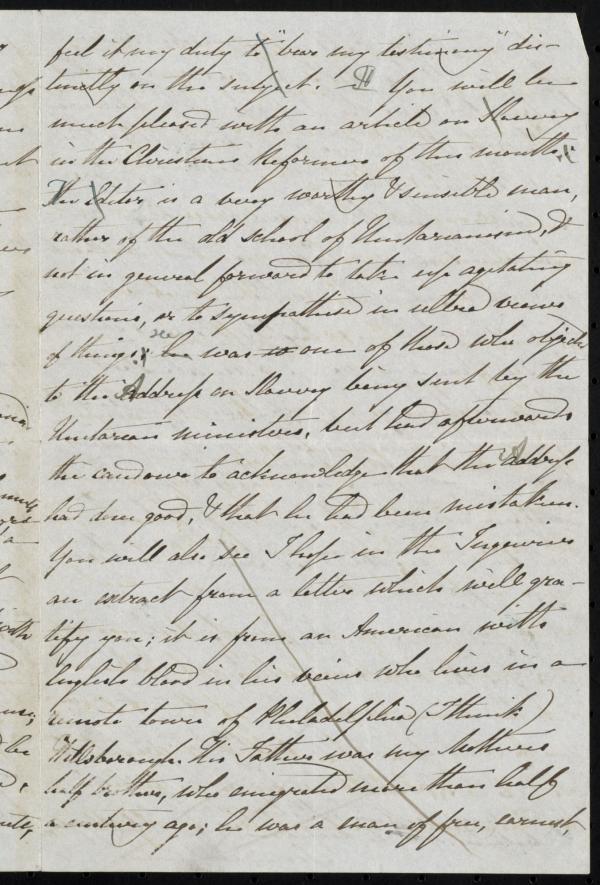 feel it my duty to "bear my testimony" dis-
tinctly on the subject. H You will be
much pleased with an article on Slavery
in the Christian Reformer of this month.
The Editor is a very worthy & sensible man,
rather of the old school of Unitarianism, &
not in general forward to take up agitating
questions, or to sympathise in ultra views
of things; he was so one of those who objected
to the Address on Slavery being sent by the
Unitarian ministers, but had afterwards
the candour to acknowledge that the Address
had done good, & that he had been mistaken.
You will also see I hope in the Inquirer
an extract from a letter which will gra-
tify you; it is from an American with
English blood in his veins who lives in a
remote town of Philadelphia (I think)
Hillsborough. His Father was my Mothers
half brother, who emigrated more than half
a century ago; he was a man of free, earnest,